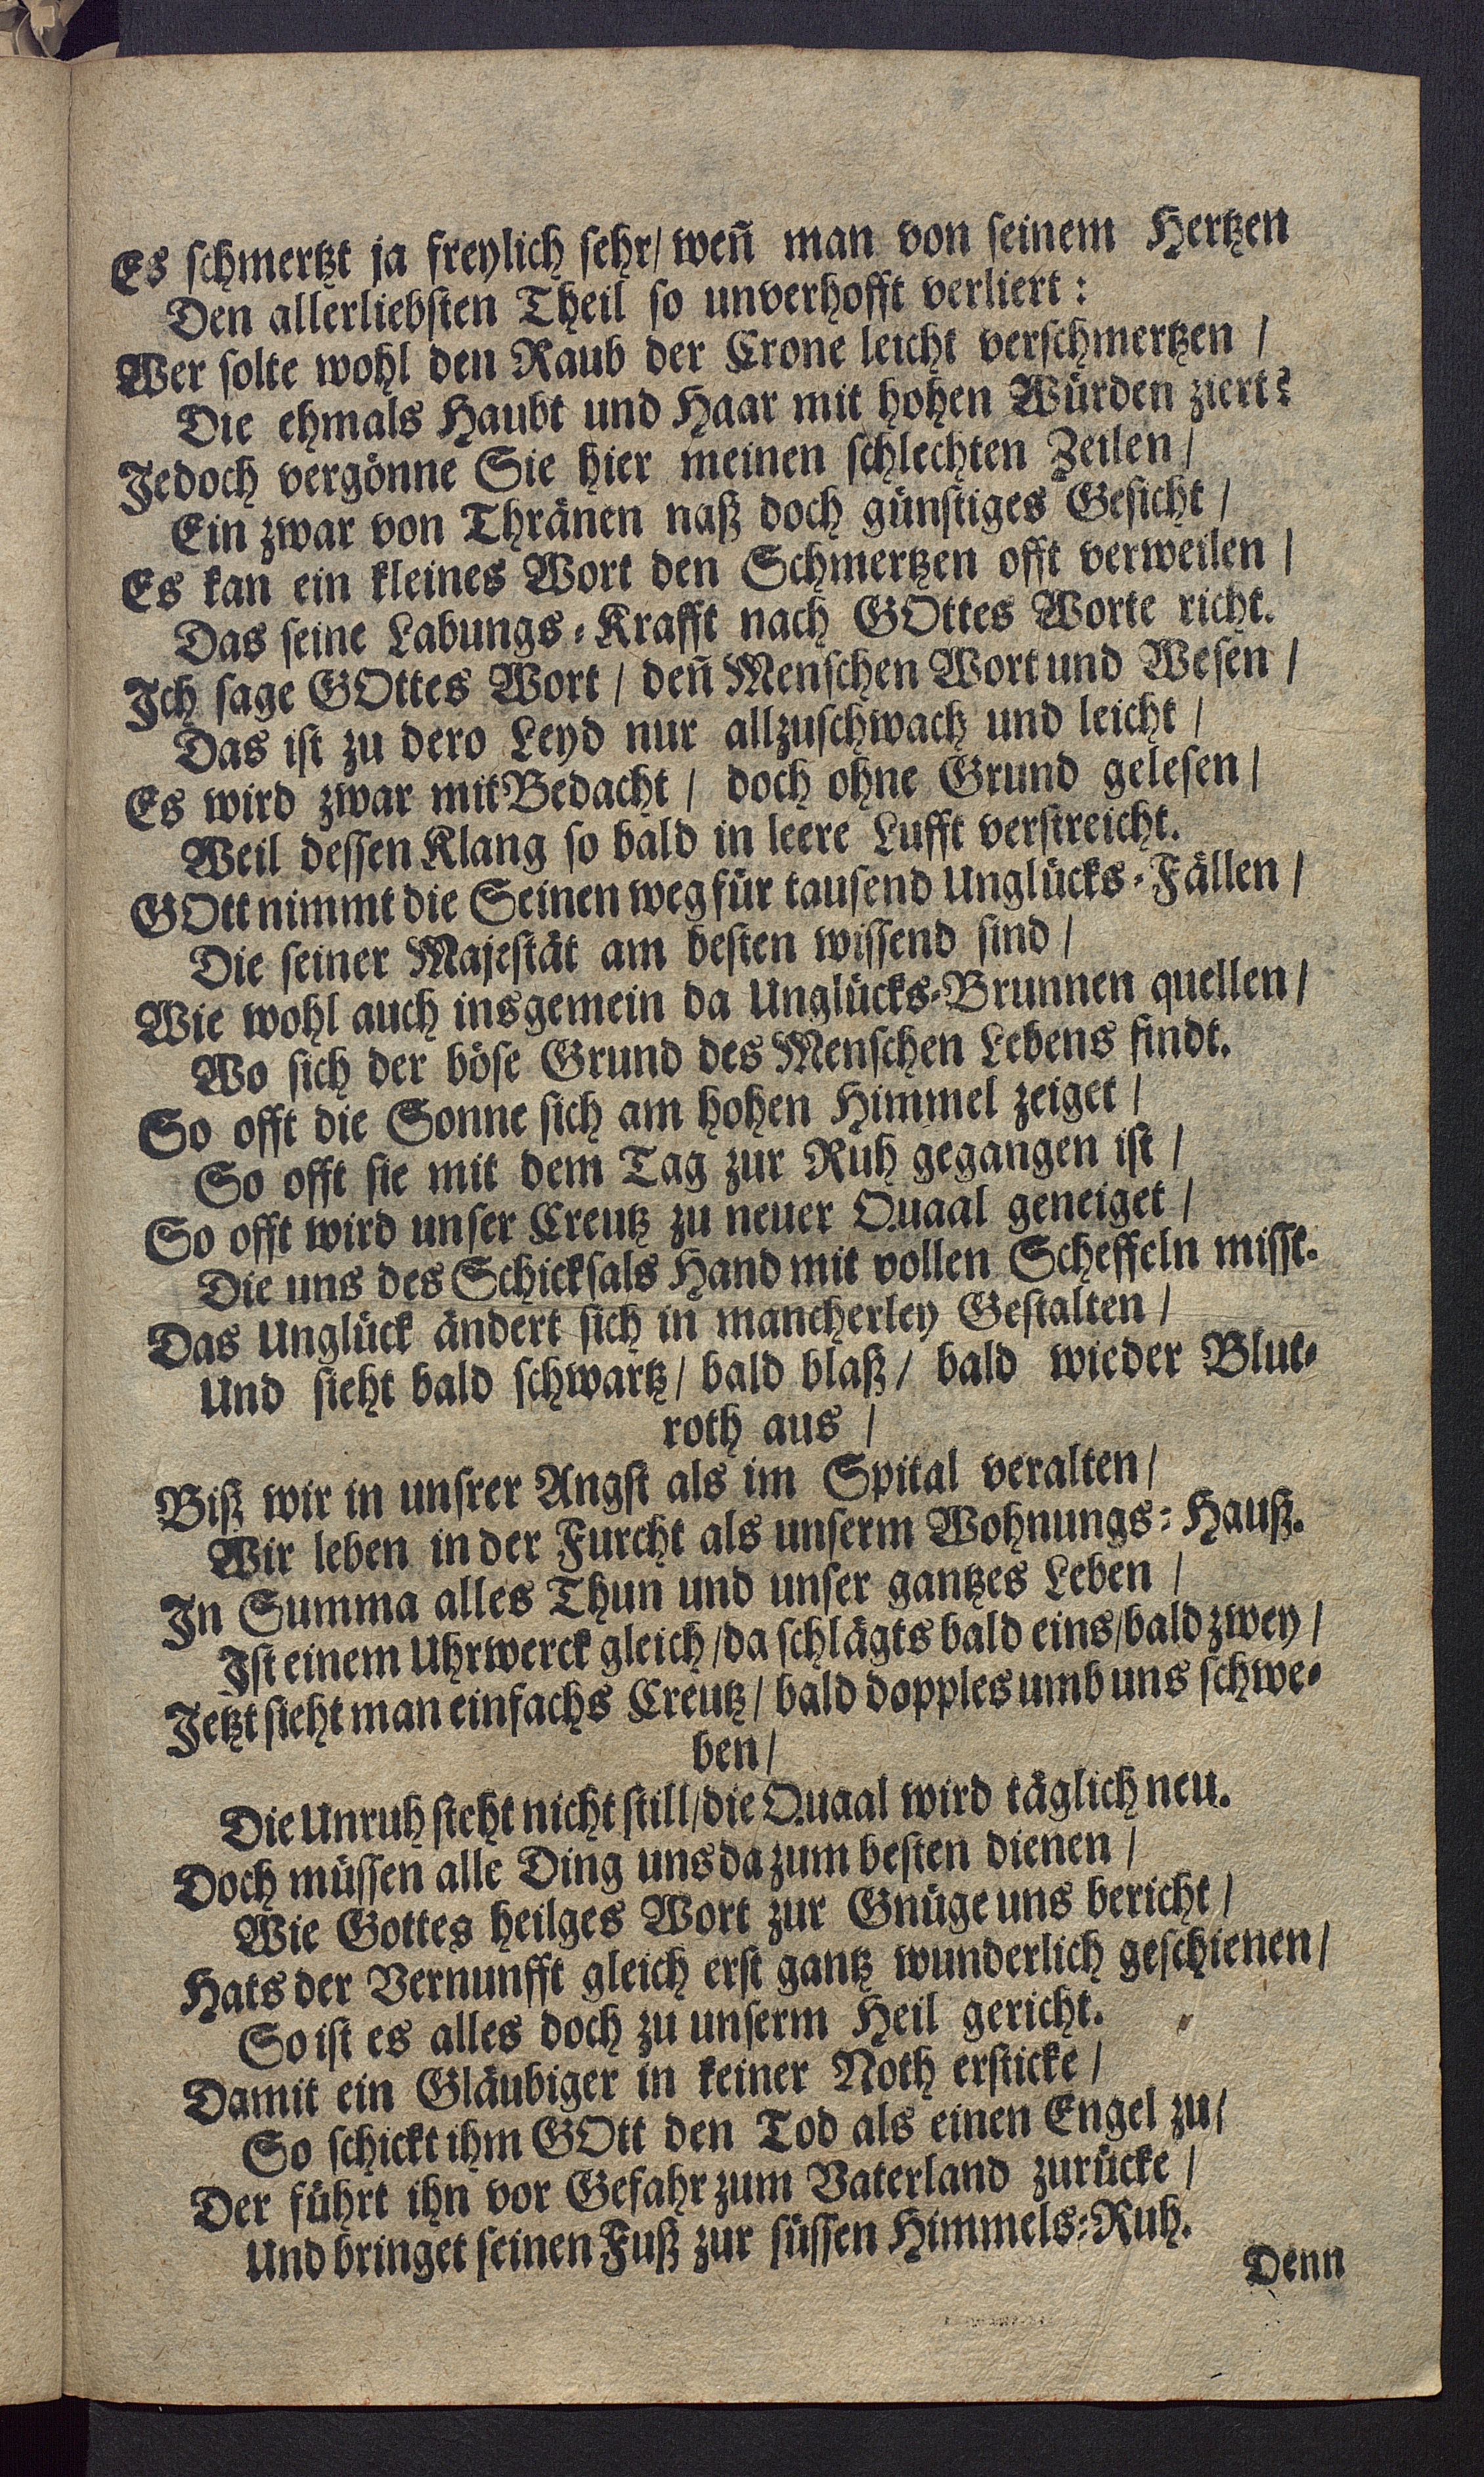 Es schmertzt ja freylich sehr/ weñ man von seinem Hertzen
Den allerliebsten Theil so unverhofft verliert:
Wer solte wohl den Raub der Crone leicht verschmertzen /
Die ehmals Haubt und Haar mit hohen Würden ziert?
Jedoch vergönne Sie hier meinen schlechten Zeilen /
Ein zwar von Thränen naß doch günstiges Gesicht /
Es kan ein kleines Wort den Schmertzen offt verweilen /
Das seine Labungs-Krafft nach GOttes Worte richt.
Ich sage GOttes Wort / deñ Menschen Wort und Wesen /
Das ist zu dero Leyd nur allzuschwach und leicht /
Es wird zwar mit Bedacht / doch ohne Grund gelesen /
Weil dessen Klang so bald in leere Lufft verstreicht.
GOtt nimmt die Seinen weg für tausend Unglücks-Fällen /
Die seiner Majestät am besten wissend sind /
Wie wohl auch insgemein da Unglücks-Brunnen quellen /
Wo sich der böse Grund des Menschen Lebens findt.
So offt die Sonne sich am hohen Himmel zeiget /
So offt sie mit dem Tag zur Ruh gegangen ist /
So offt wird unser Creutz zu neuer Quaal geneiget /
Die uns des Schicksals Hand mit vollen Scheffeln misst.
Das Unglück ändert sich in mancherley Gestalten /
Und sieht bald schwartz / bald blaß / bald wieder Blut-
roth aus /
Biß wir in unsrer Angst als im Spital veralten /
Wir leben in der Furcht als unserm Wohnungs-Hauß.
In Summa alles Thun und unser gantzes Leben /
Ist einem Uhrwerck gleich / da schlägts bald eins / bald zwey /
Jetzt sieht man einfachs Creutz / bald dopples umb uns schwe-
ben /
Die Unruh steht nicht still / die Quaal wird täglich neu.
Doch müssen alle Ding uns da zum besten dienen /
Wie Gottes heilges Wort zur Gnüge uns bericht /
Hats der Vernunfft gleich erst gantz wunderlich geschienen /
So ist es alles doch zu unserm Heil gericht.
Damit ein Gläubiger in keiner Noth ersticke /
So schickt ihm GOtt den Tod als einen Engel zu /
Der führt ihn vor Gefahr zum Vaterland zurücke /
Und bringet seinen Fuß zur süssen Himmels-Ruh.
Denn